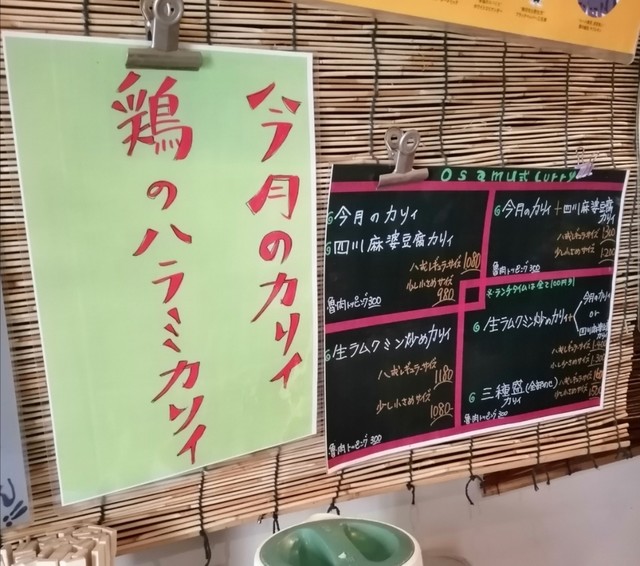 今月のカリィ
鶏のハラミカリィ
osamu式curry
今月のカリィ
四川麻婆豆腐カリィ
八戒レギュラーサイズ 1080
少し小さめサイズ 980
魯肉トッピング300
今月のカリィ+四川麻婆豆腐
カリィ
八戒レギュラーサイズ 1300
少し小さめサイズ 1200
魯肉トッピング300
※ランチタイムは全て100円引
生ラムクミン炒めカリィ
八戒レギュラーサイズ
1180
少し小さめサイズ
1080
魯肉トッピング300
生ラムクミン炒めカリィ+
今月のカリィ
or
四川麻婆豆腐
カリィ
八戒レギュラーサイズ
少し小さめサイズ
三種盛(全部のせ)
カリィ
八戒レギュラーサイズ
少し小さめサイズ
魯肉トッピング300